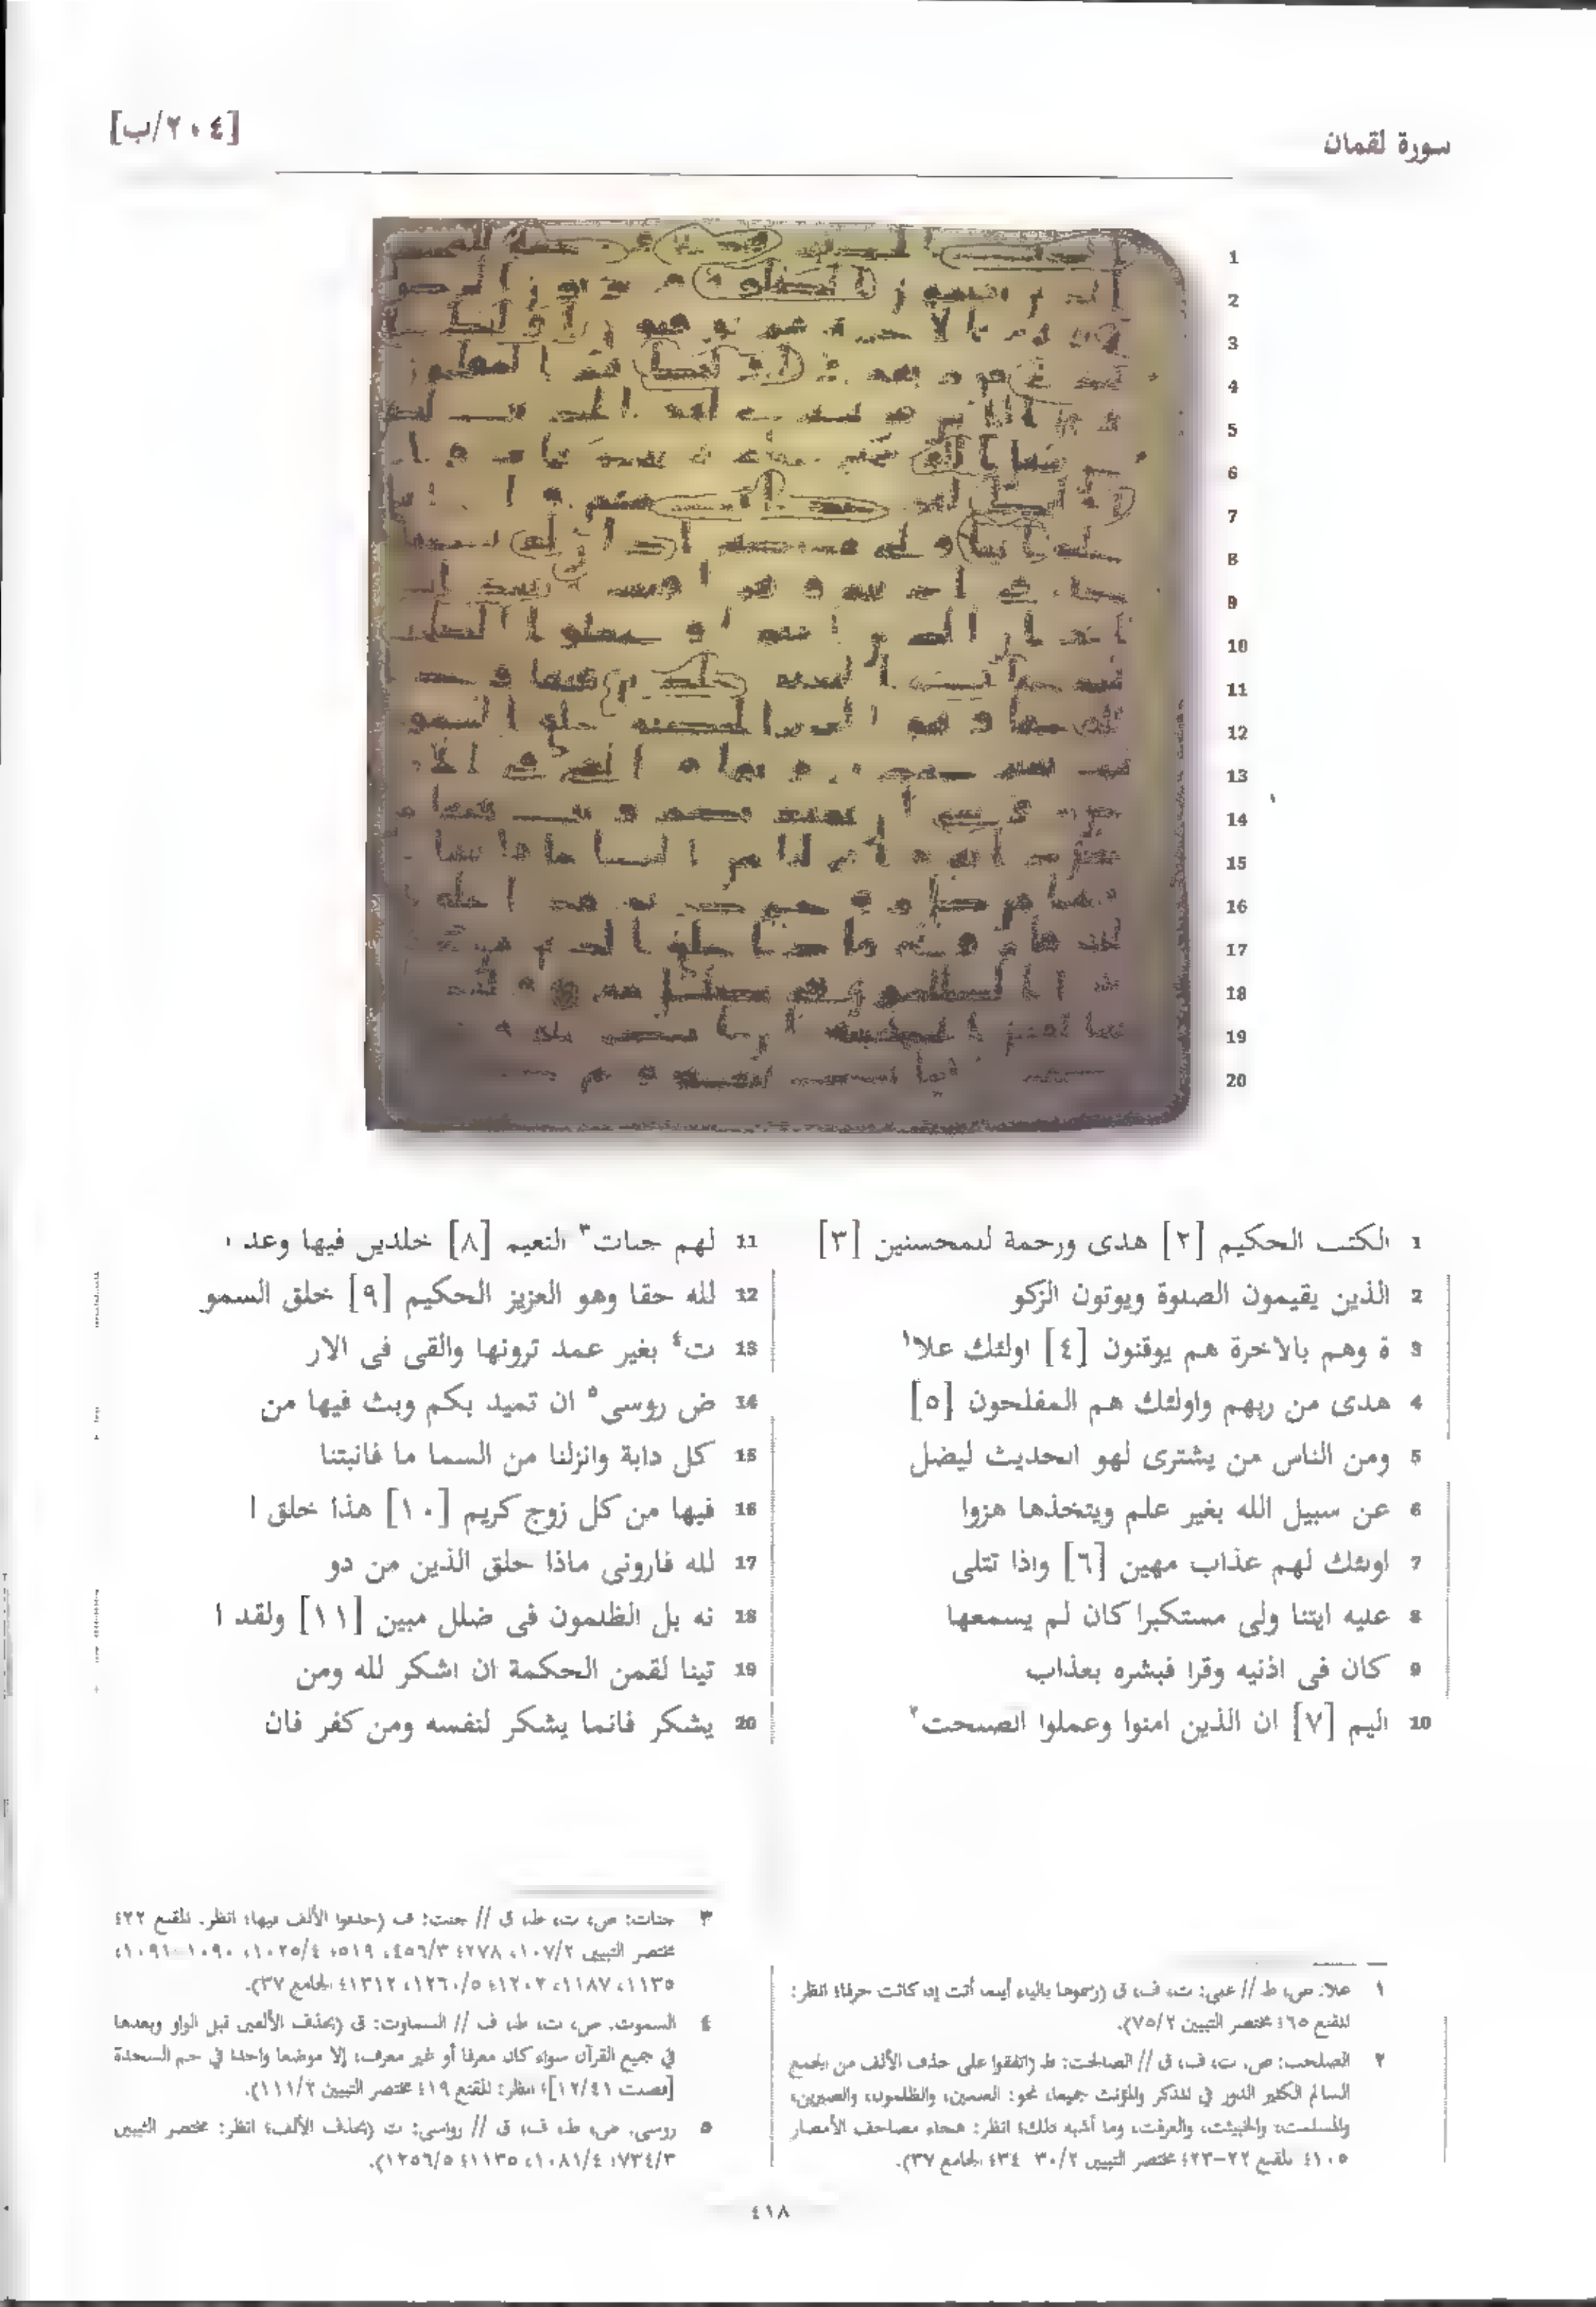 سورة لقمان
[٢٠٤/ب]
1 الكتب الحكيم [٢] هدى ورحمة للمحسنين [٣]
2 الذين يقيمون الصلوة ويوتون الزكو
3 ة وهم بالاخرة هم يوقنون [٤] اولئك علا١
4 هدى من ربهم واولئك هم المفلحون [٥]
5 ومن الناس من يشترى لهو الحديث ليضل
6 عن سبيل الله بغير علم ويتخذها هزوا
7 اولئك لهم عذاب مهين [٦] واذا تتلى
8 عليه ايتنا ولى مستكبرا كان لم يسمعها
9 كان فى اذنيه وقرا فبشره بعذاب
10 اليم [٧] ان الذين امنوا وعملوا الصلحت٢
11 لهم جنات٣ النعيم [٨] خلدين فيها وعد ا
12 لله حقا وهو العزيز الحكيم [٩] خلق السمو
13 ت٤ بغير عمد ترونها والقى فى الار
14 ض روسى٥ ان تميد بكم وبث فيها من
15 كل دابة وانزلنا من السما ما فانبتنا
16 فيها من كل زوج كريم [١٠] هذا خلق ا
17 لله فارونى ماذا خلق الذين من دو
18 نه بل الظلمون فى ضلل مبين [١١] ولقد ا
19 تينا لقمن الحكمة ان اشكر لله ومن
20 يشكر فانما يشكر لنفسه ومن كفر فان
١ علا: ص، ط // على: ت، ف، ق (رسموها بالياء أينما أتت إذا كانت حرفا؛ انظر:
المقنع ٤٦٥ مختصر التبيين ٧٥/٢).
٢ الصلحت: ص، ت، ف، ق // الصالحت: ط (اتفقوا على حذف الألف من الجمع
السالم الكثير الدور في المذكر والمؤنث جميعا، نحو: العلمين، والظلمون، والصبرين،
والمسلمت، والخبيثت، والغرفت، وما أشبه ذلك؛ انظر: هجاء مصاحف الأمصار
١٠٥؛ المقنع ٢٢-٢٣؛ مختصر التبيين ٣٠/٢-٣٤؛ الجامع ٣٧).
٣ جنات: ص، ت، ط، ق // جنت: ف (حذفوا الألف فيها؛ انظر: المقنع ٤٢٢
مختصر التبيين ١٠٧/٢، ٢٧٨؛ ٤٥٦/٣، ٥١٩؛ ١٠٢٥/٤، ١٠٩٠-١٠٩١،
١١٣٥، ١١٨٧، ١٢٠٢؛ ١٢٦٠/٥، ١٣١٢؛ الجامع ٣٧).
٤ السموت: ص، ت، ط، ف // السماوت: ق (بحذف الألفين قبل الواو وبعدها
في جميع القرآن سواء كان معرفا أو غير معرف، إلا موضعا واحدا في حم السجدة
[فصلت ١٢/٤١]؛ انظر: المقنع ٤١٩ مختصر التبيين ١١١/٢).
٥ روسى: ص، ط، ف، ق // رواسى: ت (بحذف الألف؛ انظر: مختصر التبيين
٧٣٤/٣؛ ١٠٨١/٤، ١١٣٥؛ ١٢٥٦/٥).
٤١٨